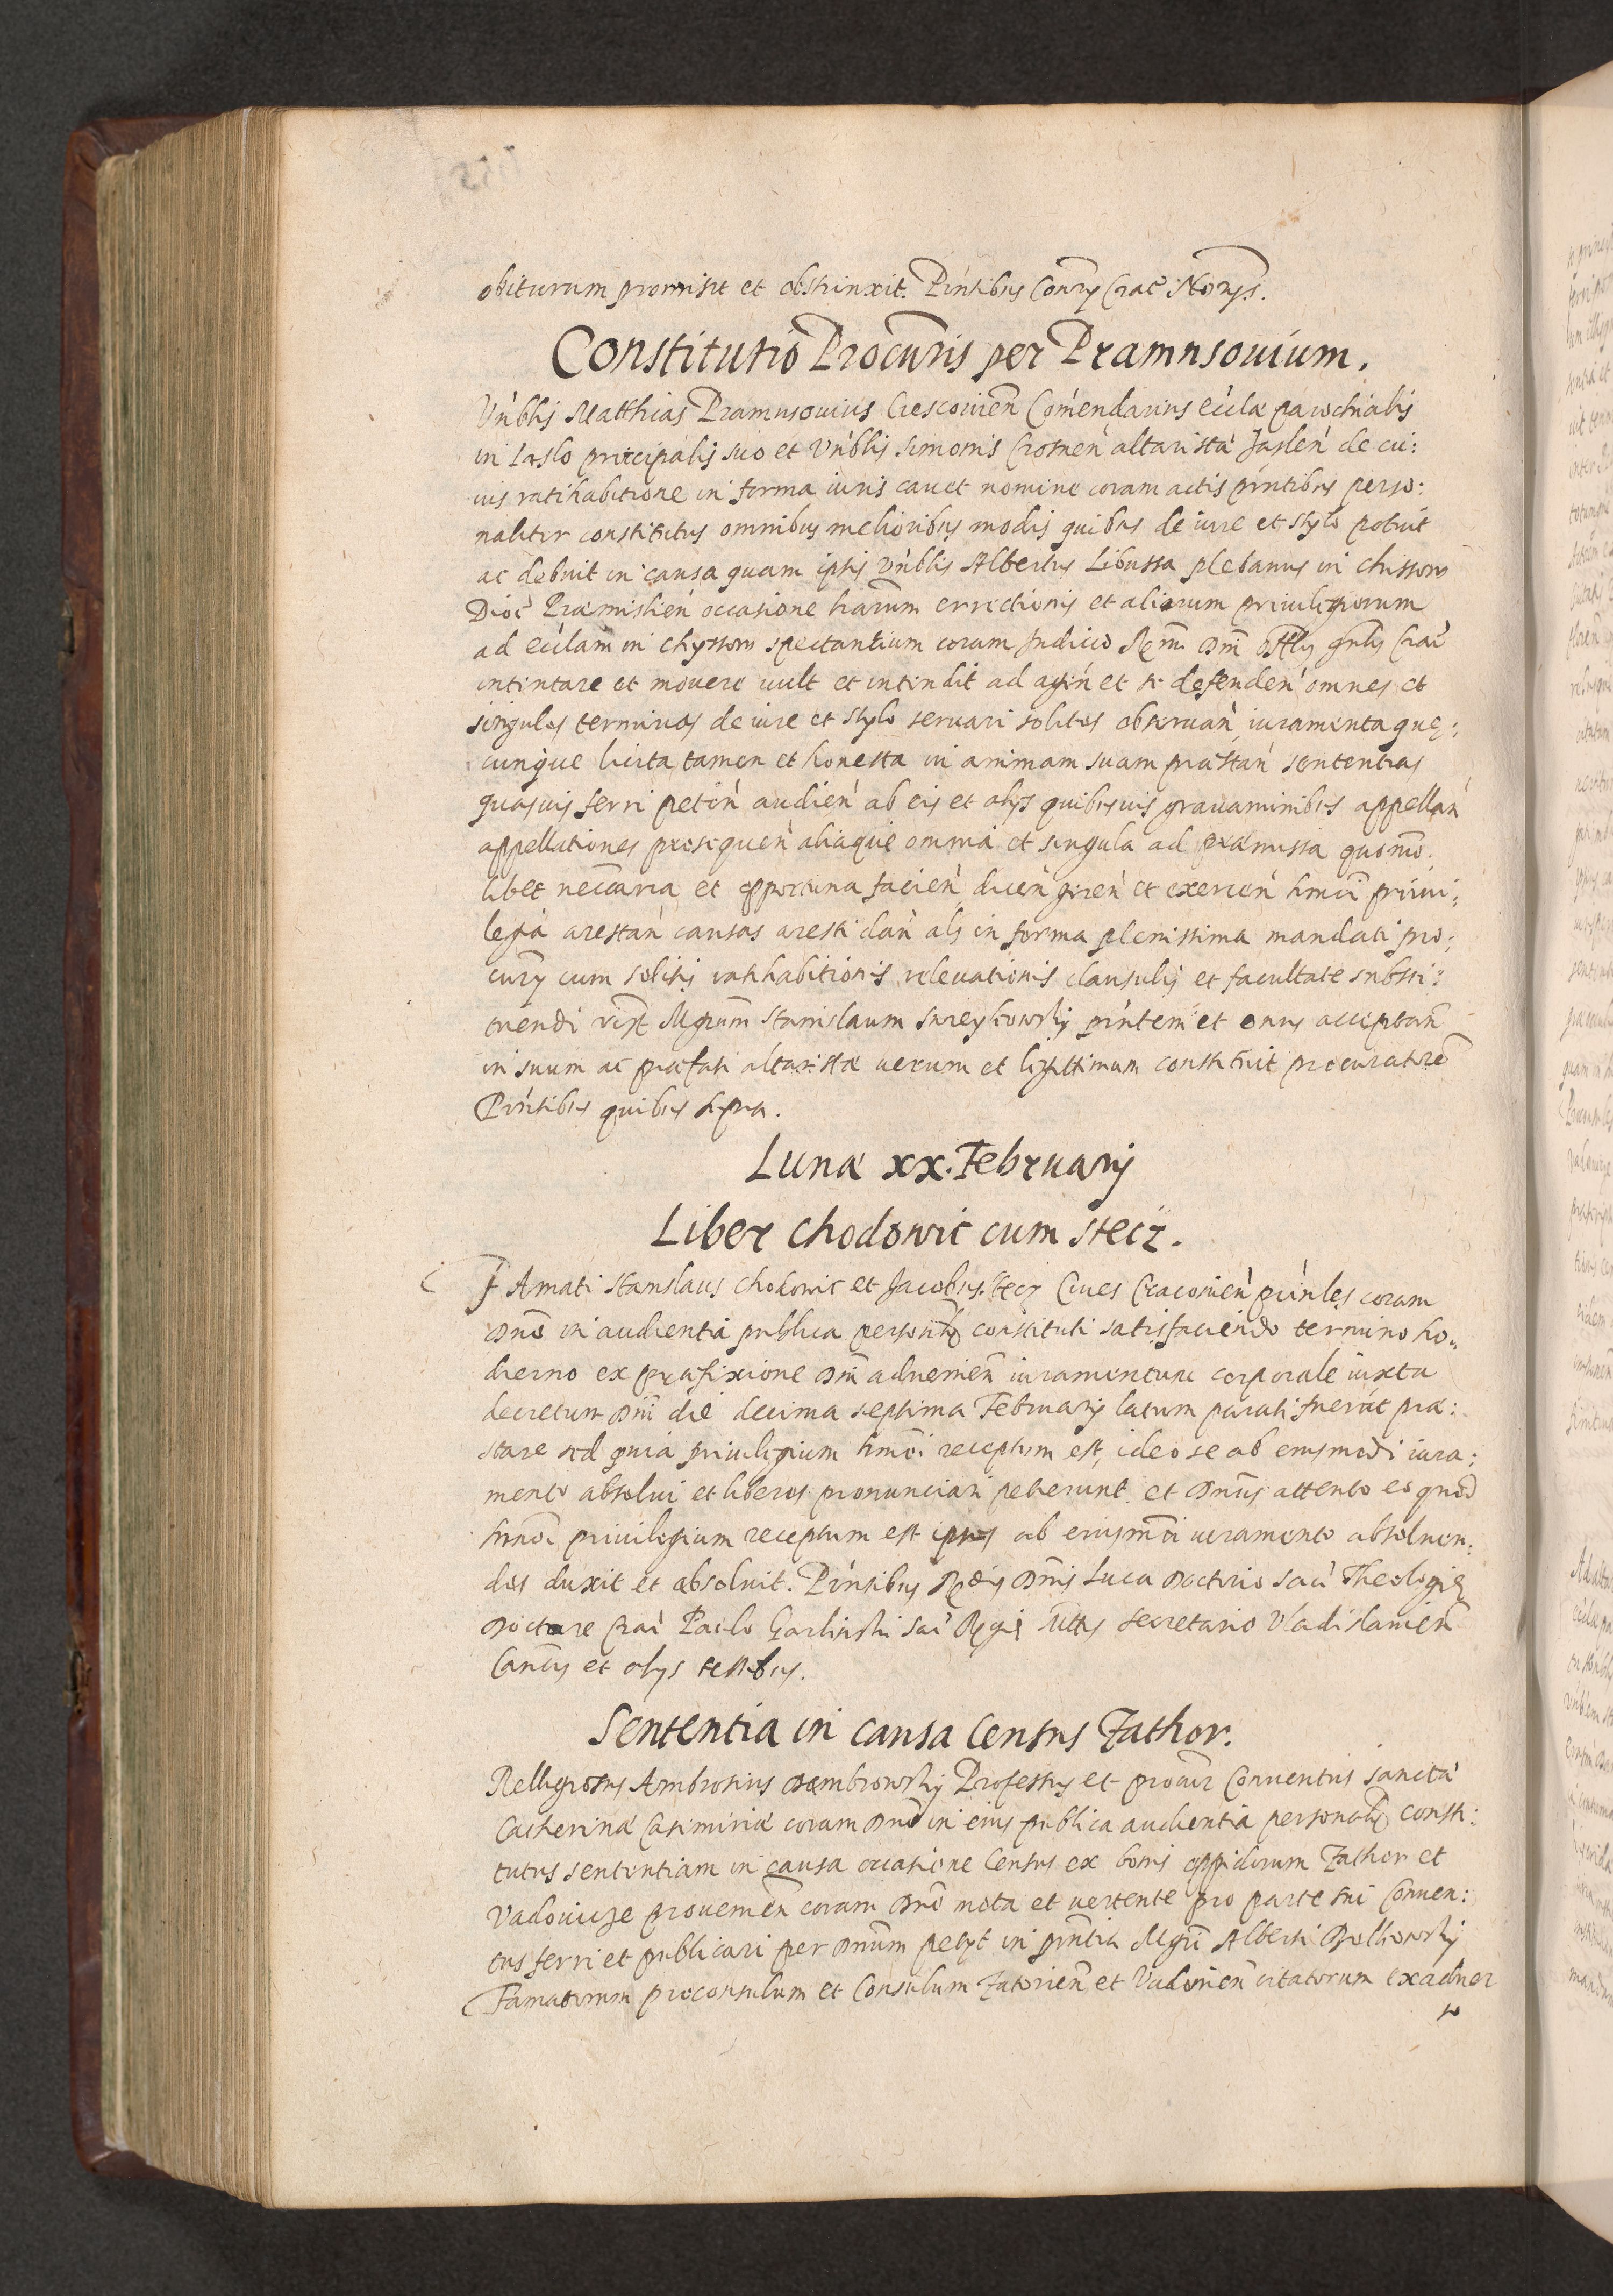 obiturum promisit et obstrinxit. Pn̄tibus Con̄ry Crac̀ Norys.
Constitutio Procuris per Pramnsouium.
Vn̄blis Matthias Pramnsouius Crescouien̄ Com̄endarius eccl̄æ parochialis
in Iaslo principalis suo et Vn̄blis Simonis Crosnen̄ altaristæ Jaslen̄ de cu:
ius ratihabitione in forma iuris cauet nomine coram actis pn̄tibus perso:
naliter constitutus omnibus melioribus modis quibus de iure et stylo potuit
ac debuit in causa quam ipsis Vn̄blis Albertus Libussa plebanus in
Dioc̀ Præmislien̄ occasione errectionis et aliorum priuilegiorum
ad eccl̄am in spectantium coram Judicio Rm̄i Dn̄i Crac̀
intentare et mouere uult et intendit ad agen̄ et se defenden̄ omnes et
singulos terminos de iure et stylo seruari solitos obseruan̄ iuramenta quę:
cunque licita tamen et honesta in animam suam præstan̄ sententias
quasuis ferri peten̄ audien̄ ab eis et alijs quibusuis grauaminibus appellan̄
appellationes prosequen̄ aliaque omnia et singula ad præmissa quomo:
libet necc̄aria et opportuna facien̄ dicen̄ geren̄ et exercen̄ hm̄oi priui:
legia arestan̄ causas aresti dan̄ als in forma plenissima mandati pro:
cury cum solitis ratihabitionis releuationis clausulis et facultate substi:
tuendi Mgrum Stanislaum pn̄tem et onus acceptan̄
in suum ac præfati altaristæ uerum et legittimum constituit procuratorē
Pn̄tibus quibus supra.
Lunæ xx. Februarij
Liber Chodowic cum Stecz.
FAmati Stanislaus Chodowic et Jacobus Stecz Ciues Cracouien̄ pn̄tes coram
Dn̄o in audientia publica personlr̄ constituti satisfaciendo termino ho:
dierno ex præfixione Dn̄i aduenien̄ iuramentum corporale iuxta
decretum Dn̄i die decima septima Februarij latum parati fuerūt præ:
stare sed quia priuilegium hm̄oi receptum est, ideo se ab eiusmodi iura:
mento absolui et liberos pronunciari petierunt. et Dn̄us attento eo quod
hm̄oi priuilegium receptum est ipsos ab eiusmōi iuramento absoluen:
dos duxit et absoluit. Pn̄tibus Rn̄dis Dn̄is Luca Doctorio Sac̀ Theologię
Doctore Crac̀ Paulo Garlinski Sac̀ Regię Mttis Secretario Vladislauien̄
Can̄cis et alijs testibus.
Sententia in causa Census Zathor.
Relligiosus Ambrosius Dambrowskij Professus et procur̄ Conuentus sanctæ
Catherinæ Casimiriæ coram Dn̄o in eius publica audientia personalr̄ consti:
tutus sententiam in causa occasione Census ex bonis oppidorum Zathor et
Vadouicze prouenien̄ coram Dn̄o mota et uertente pro parte sui Conuen:
tus ferri et publicari per Dn̄um petijt in pn̄tia Mgri Alberti
Famatorum proconsulum et Consulum Zatorien̄ et Vadouien̄ citatorum ex aduer
so